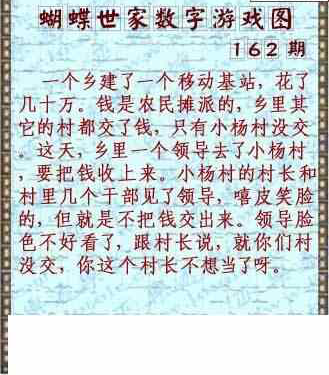 蝴蝶世家数字游戏图
162期
一个乡建了一个移动基站，花了
几十万。钱是农民摊派的，乡里其
它的村都交了钱，只有小杨村没交
。这天，乡里一个领导去了小杨村
，要把钱收上来。小杨村的村长和
村里几个干部见了领导，嘻皮笑脸
的，但就是不把钱交出来。领导脸
色不好看了，跟村长说，就你们村
没交，你这个村长不想当了呀。